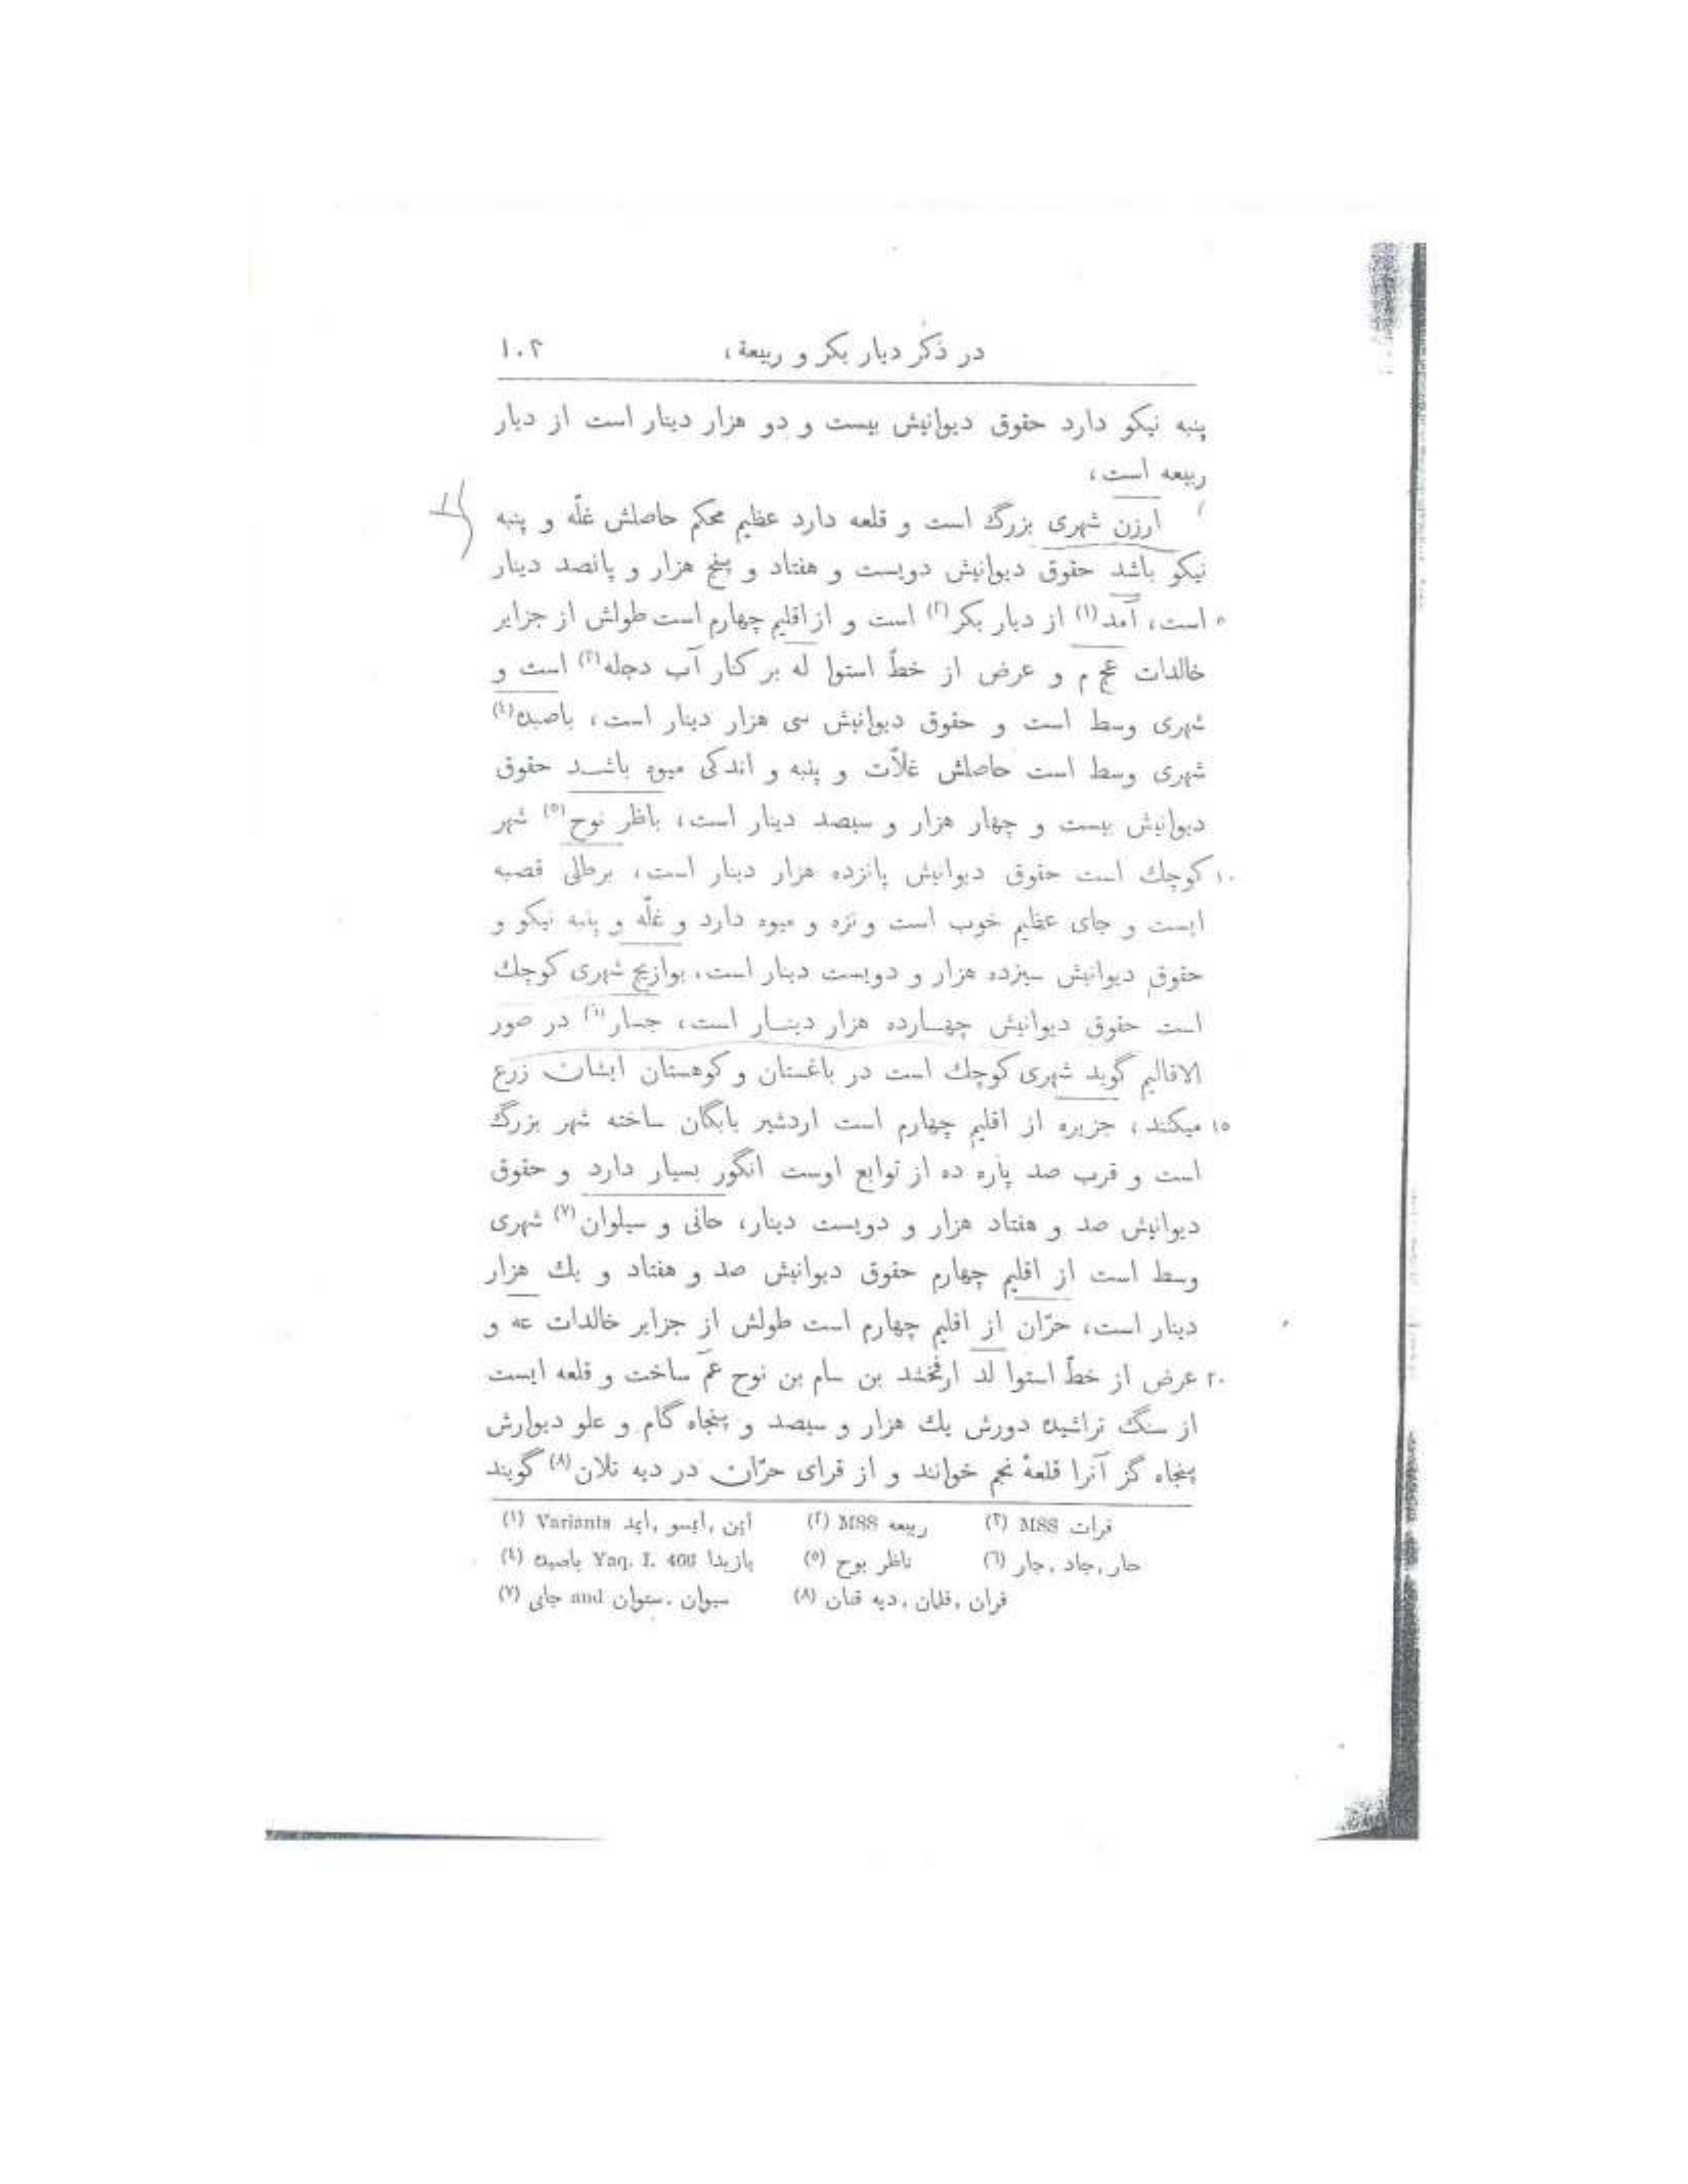 در ذکر دیار بکر و ربیعة، ۱۰۳
پنبه نیکو دارد حقوق دیوانیش بیست و دو هزار دینار است از دیار
ربیعه است،
ارزن شهری بزرگ است و قلعه دارد عظیم محکم حاصلش غلّه و پنبه
نیکو باشد حقوق دیوانیش دویست و هفتاد و پنج هزار و پانصد دینار
۵ است، آمد(۱) از دیار بکر(۲) است و از اقلیم چهارم است طولش از جزایر
خالدات عج م و عرض از خطّ استوا له بر کنار آب دجله(۳) است و
شهری وسط است و حقوق دیوانیش سی هزار دینار است، باصیده(٤)
شهری وسط است حاصلش غلاّت و پنبه و اندکی میوه باشد حقوق
دیوانیش بیست و چهار هزار و سیصد دینار است، باظر نوح(۵) شهر
۱۰ کوچك است حقوق دیوانیش پانزده هزار دینار است، برطلی قصبه
ایست و جای عظیم خوب است و نزه و میوه دارد و غلّه و پنبه نیکو و
حقوق دیوانیش سیزده هزار و دویست دینار است، بوازیج شهری کوچك
است حقوق دیوانیش چهارده هزار دینار است، جسار(٦) در صور
الاقالیم گوید شهری کوچك است در باغستان و کوهستان ایشان زرع
۱۵ میکنند، جزیره از اقلیم چهارم است اردشیر بابگان ساخته شهر بزرگ
است و قرب صد پاره ده از توابع اوست انگور بسیار دارد و حقوق
دیوانیش صد و هفتاد هزار و دویست دینار، حانی و سیلوان(۷) شهری
وسط است از اقلیم چهارم حقوق دیوانیش صد و هفتاد و یك هزار
دینار است، حرّان از اقلیم چهارم است طولش از جزایر خالدات عه و
۲۰ عرض از خطّ استوا لد ارفخشد بن سام بن نوح عم ساخت و قلعه ایست
از سنگ تراشیده دورش یك هزار و سیصد و پنجاه گام و علو دیوارش
پنجاه گز آنرا قلعهٔ نجم خوانند و از قرای حرّان در دیه تلان(۸) گویند
(۱) Variants آید, آیسو, آین (۲) MSS ربیعه (۳) MSS فرات
(٤) باصیده Yaq. I. 466 بازبدا (۵) ناظر بوح (٦) حار, جاد, جار
(۷) جابی and سیوان, ستوان (۸) فران, فلمان, دیه قنان